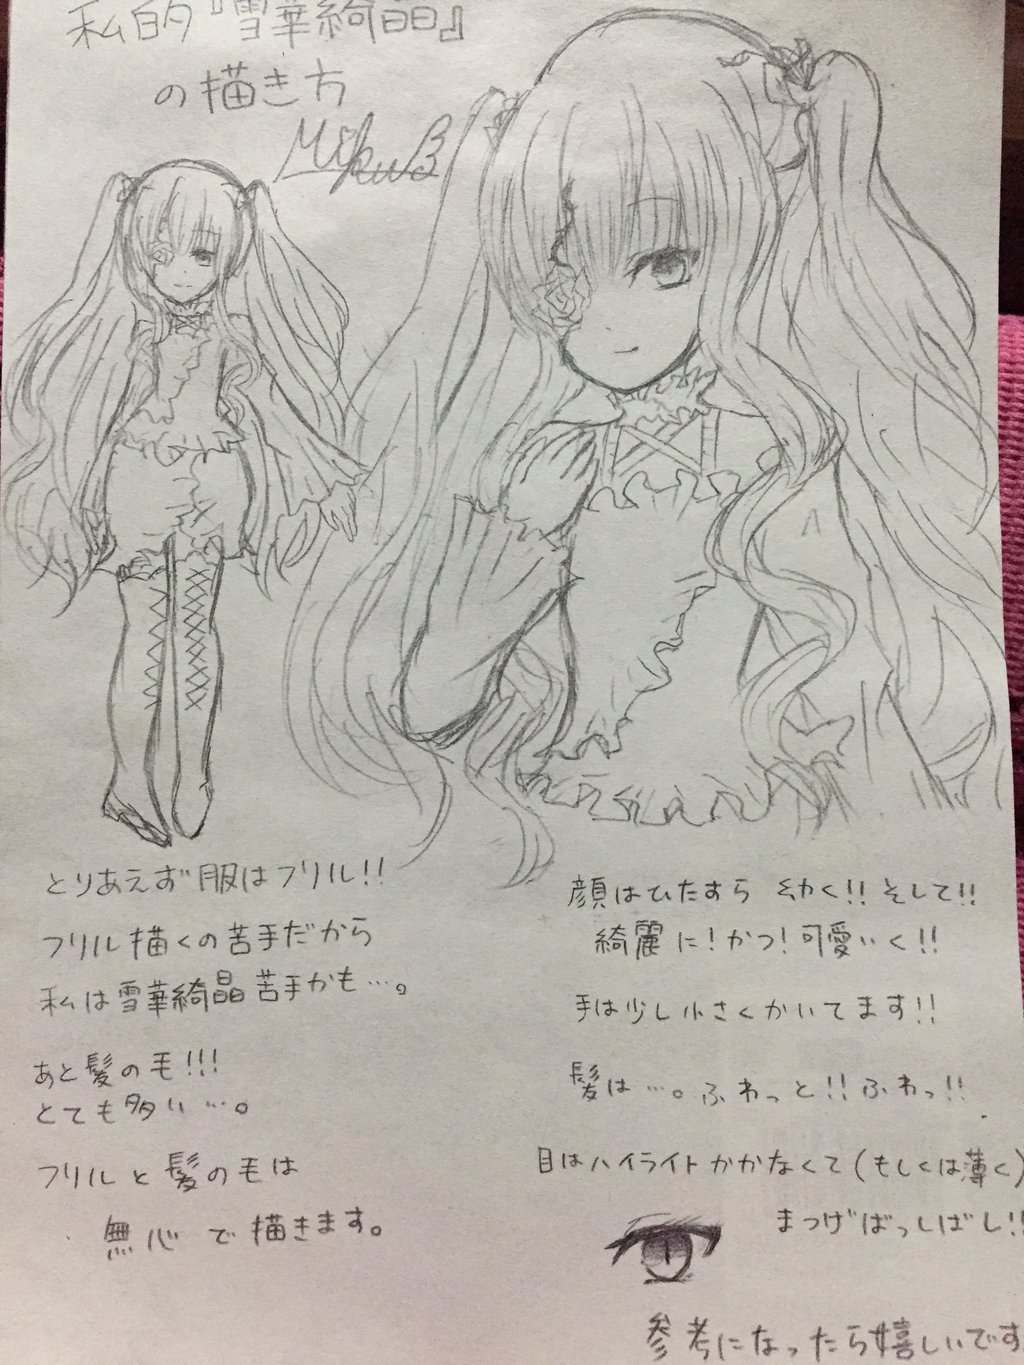 私的『雪華綺晶』
の描き方
MikuB
とりあえず服はフリル!!
フリル描くの苦手だから
私は雪華綺晶苦手かも…。
あと髪の毛!!!
とても多い…。
フリルと髪の毛は
無心で描きます。
顔はひたすら幼く!!そして!!
綺麗に!かつ!可愛いく!!
手は少し小さくかいてます!!
髪は…。ふわっと!!ふわっ!!
目はハイライトかかなくて(もしくは薄く)
まつげばっしばし!!
参考になったら嬉しいです